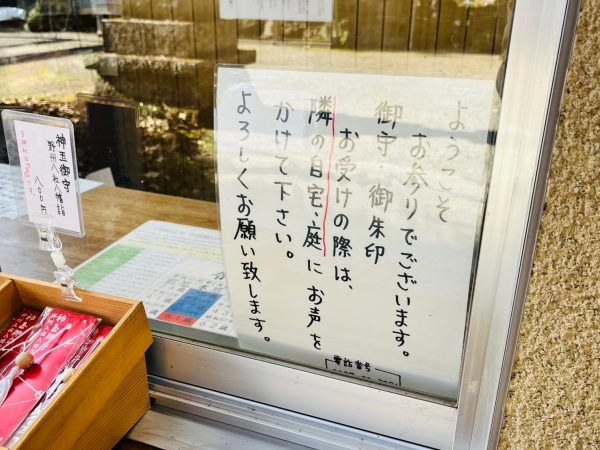 ようこそ
お参りでございます。
御守 御朱印
お受けの際は、
隣の自宅、庭に お声を
かけて下さい。
よろしくお願い致します。
電話番号
神玉御守
野州八社八幡詣
八〇〇円